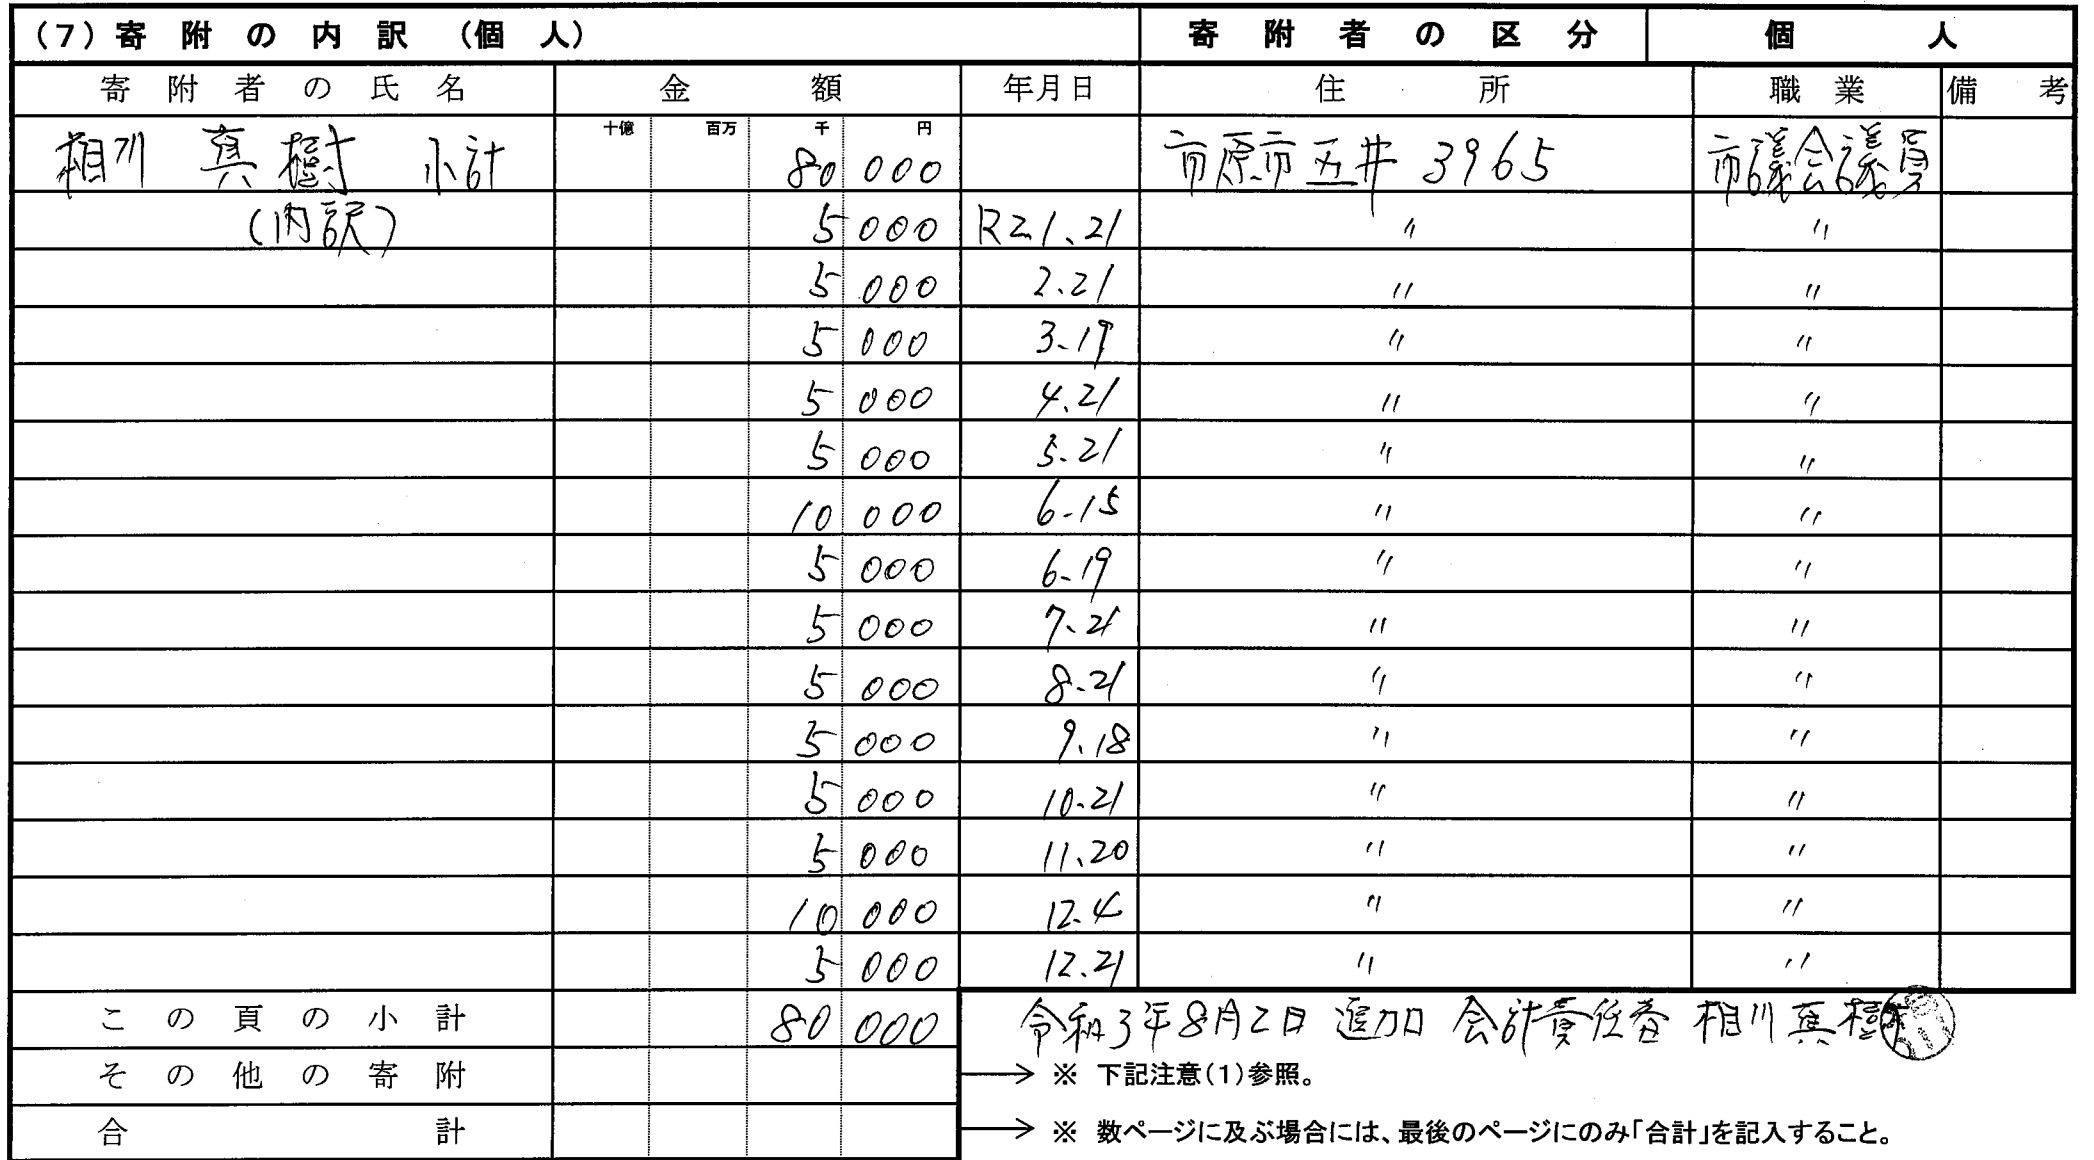 (7)寄附の内訳(個人) 寄附者の区分 個人
寄附者の氏名 金額 年月日 住所 職業 備考
十億 百万 千 円
相川 真樹 小計 80 000 市原市五井3965 市議会議員
(内訳) 5 000 R2.1.21 〃 〃
5 000 2.21 〃 〃
5 000 3.19 〃 〃
5 000 4.21 〃 〃
5 000 5.21 〃 〃
10 000 6.15 〃 〃
5 000 6.19 〃 〃
5 000 7.21 〃 〃
5 000 8.21 〃 〃
5 000 9.18 〃 〃
5 000 10.21 〃 〃
5 000 11.20 〃 〃
10 000 12.4 〃 〃
5 000 12.21 〃 〃
この頁の小計 80 000 令和3年8月2日 追加 会計責任者 相川真樹
その他の寄附 → ※ 下記注意(1)参照。
合計 → ※ 数ページに及ぶ場合には、最後のページにのみ「合計」を記入すること。